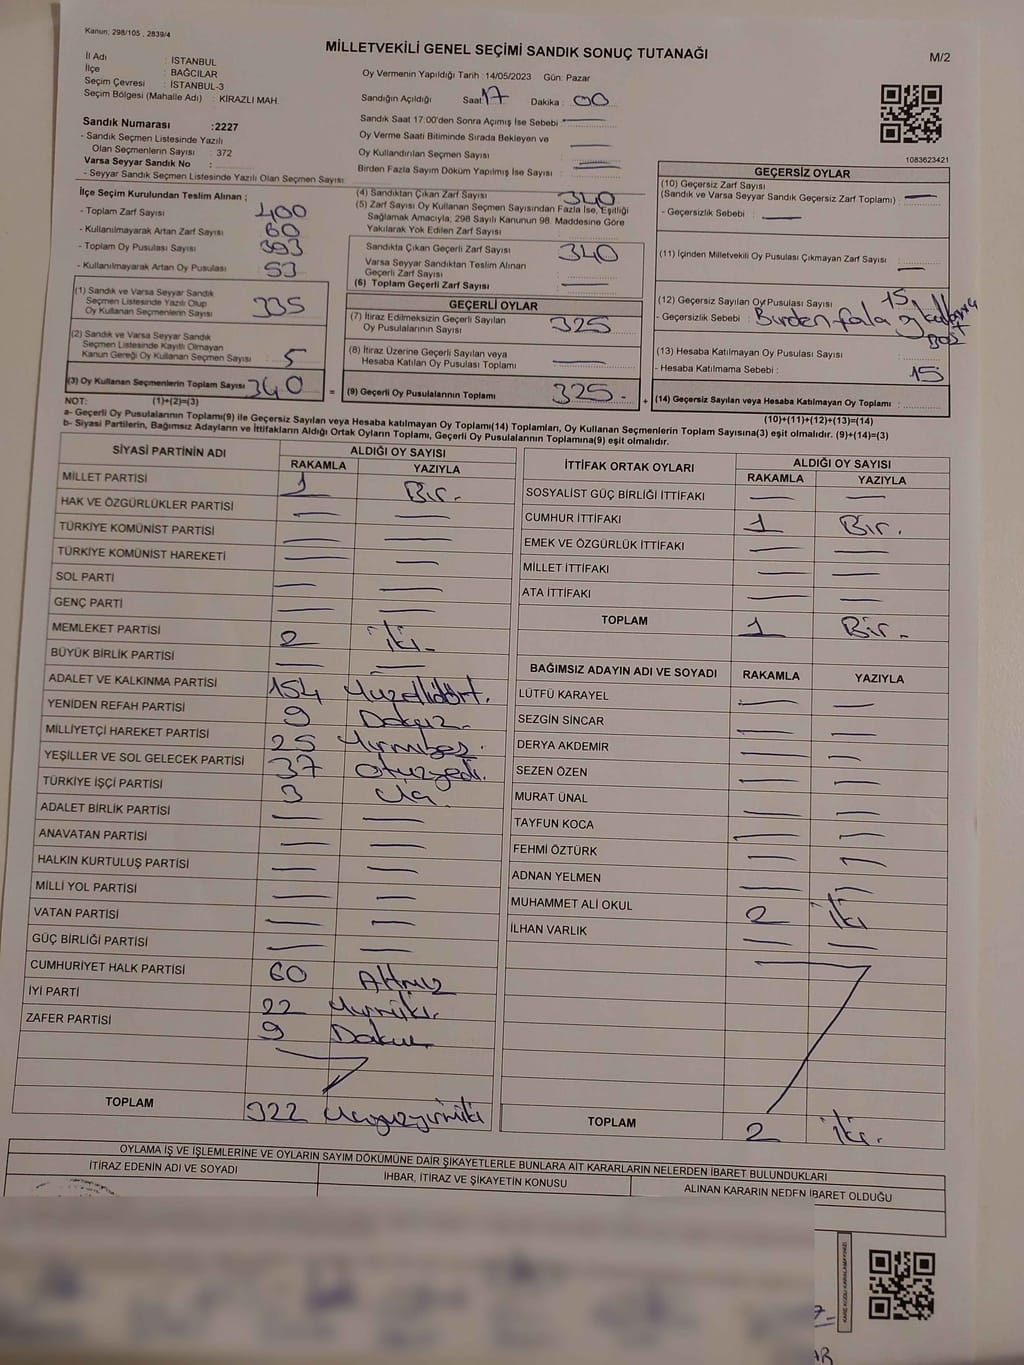 Kanun; 298/105 , 2839/4
MİLLETVEKİLİ GENEL SEÇİMİ SANDIK SONUÇ TUTANAĞI
M/2
İl Adı : İSTANBUL
İlçe : BAĞCILAR
Seçim Çevresi : İSTANBUL-3
Seçim Bölgesi (Mahalle Adı) : KİRAZLI MAH.
Sandık Numarası :2227
- Sandık Seçmen Listesinde Yazılı
Olan Seçmenlerin Sayısı : 372
Varsa Seyyar Sandık No :
- Seyyar Sandık Seçmen Listesinde Yazılı Olan Seçmen Sayısı:
Oy Vermenin Yapıldığı Tarih :14/05/2023 Gün: Pazar
Sandığın Açıldığı Saat: 17 Dakika : 00
Sandık Saat 17:00'den Sonra Açımış İse Sebebi :
Oy Verme Saati Bitiminde Sırada Bekleyen ve
Oy Kullandırılan Seçmen Sayısı :
Birden Fazla Sayım Döküm Yapılmış İse Sayısı :
1083623421
İlçe Seçim Kurulundan Teslim Alınan ;
- Toplam Zarf Sayısı : 400
- Kullanılmayarak Artan Zarf Sayısı : 60
- Toplam Oy Pusulası Sayısı : 393
- Kullanılmayarak Artan Oy Pusulası : 53
(1) Sandık ve Varsa Seyyar Sandık
Seçmen Listesinde Yazılı Olup
Oy Kullanan Seçmenlerin Sayısı : 335
(2) Sandık ve Varsa Seyyar Sandık
Seçmen Listesinde Kayıtlı Olmayan
Kanun Gereği Oy Kullanan Seçmen Sayısı : 5
(3) Oy Kullanan Seçmenlerin Toplam Sayısı : 340
(4) Sandıktan Çıkan Zarf Sayısı : 340
(5) Zarf Sayısı Oy Kullanan Seçmen Sayısından Fazla İse, Eşitliği
Sağlamak Amacıyla; 298 Sayılı Kanunun 98. Maddesine Göre
Yakılarak Yok Edilen Zarf Sayısı :
Sandıkta Çıkan Geçerli Zarf Sayısı : 340
Varsa Seyyar Sandıktan Teslim Alınan
Geçerli Zarf Sayısı :
(6) Toplam Geçerli Zarf Sayısı :
GEÇERLİ OYLAR
(7) İtiraz Edilmeksizin Geçerli Sayılan
Oy Pusulalarının Sayısı : 325
(8) İtiraz Üzerine Geçerli Sayılan veya
Hesaba Katılan Oy Pusulası Toplamı :
= (9) Geçerli Oy Pusulalarının Toplamı : 325 +
GEÇERSİZ OYLAR
(10) Geçersiz Zarf Sayısı
(Sandık ve Varsa Seyyar Sandık Geçersiz Zarf Toplamı) :
- Geçersizlik Sebebi :
(11) İçinden Milletvekili Oy Pusulası Çıkmayan Zarf Sayısı :
(12) Geçersiz Sayılan Oy Pusulası Sayısı : 15
- Geçersizlik Sebebi :
(13) Hesaba Katılmayan Oy Pusulası Sayısı :
- Hesaba Katılmama Sebebi : 15
(14) Geçersiz Sayılan veya Hesaba Katılmayan Oy Toplamı :
NOT: (1)+(2)=(3)
(10)+(11)+(12)+(13)=(14)
a- Geçerli Oy Pusulalarının Toplamı(9) ile Geçersiz Sayılan veya Hesaba katılmayan Oy Toplamı(14) Toplamları, Oy Kullanan Seçmenlerin Toplam Sayısına(3) eşit olmalıdır. (9)+(14)=(3)
b- Siyasi Partilerin, Bağımsız Adayların ve İttifakların Aldığı Ortak Oyların Toplamı, Geçerli Oy Pusulalarının Toplamına(9) eşit olmalıdır.
SİYASİ PARTİNİN ADI ALDIĞI OY SAYISI
RAKAMLA YAZIYLA
MİLLET PARTİSİ 1 Bir.
HAK VE ÖZGÜRLÜKLER PARTİSİ
TÜRKİYE KOMÜNİST PARTİSİ
TÜRKİYE KOMÜNİST HAREKETİ
SOL PARTİ
GENÇ PARTİ
MEMLEKET PARTİSİ 2 iki.
BÜYÜK BİRLİK PARTİSİ
ADALET VE KALKINMA PARTİSİ 154 Yüzellidört.
YENİDEN REFAH PARTİSİ 9 Dokuz.
MİLLİYETÇİ HAREKET PARTİSİ 25 Yirmibeş.
YEŞİLLER VE SOL GELECEK PARTİSİ 37 otuzyedi.
TÜRKİYE İŞÇİ PARTİSİ 3 Üç.
ADALET BİRLİK PARTİSİ
ANAVATAN PARTİSİ
HALKIN KURTULUŞ PARTİSİ
MİLLİ YOL PARTİSİ
VATAN PARTİSİ
GÜÇ BİRLİĞİ PARTİSİ
CUMHURİYET HALK PARTİSİ 60 Altmış
İYİ PARTİ 22 Yirmiiki.
ZAFER PARTİSİ 9 Dokuz
TOPLAM 322 Üçyüzyirmiiki
İTTİFAK ORTAK OYLARI ALDIĞI OY SAYISI
RAKAMLA YAZIYLA
SOSYALİST GÜÇ BİRLİĞİ İTTİFAKI
CUMHUR İTTİFAKI 1 Bir.
EMEK VE ÖZGÜRLÜK İTTİFAKI
MİLLET İTTİFAKI
ATA İTTİFAKI
TOPLAM 1 Bir.
BAĞIMSIZ ADAYIN ADI VE SOYADI RAKAMLA YAZIYLA
LÜTFÜ KARAYEL
SEZGİN SİNCAR
DERYA AKDEMİR
SEZEN ÖZEN
MURAT ÜNAL
TAYFUN KOCA
FEHMİ ÖZTÜRK
ADNAN YELMEN
MUHAMMET ALİ OKUL 2 iki
İLHAN VARLIK
TOPLAM 2 iki.
OYLAMA İŞ VE İŞLEMLERİNE VE OYLARIN SAYIM DÖKÜMÜNE DAİR ŞİKAYETLERLE BUNLARA AİT KARARLARIN NELERDEN İBARET BULUNDUKLARI
İTİRAZ EDENİN ADI VE SOYADI
İHBAR, İTİRAZ VE ŞİKAYETİN KONUSU
ALINAN KARARIN NEDEN İBARET OLDUĞU
KARE KODU KARALAMAYINIZ!